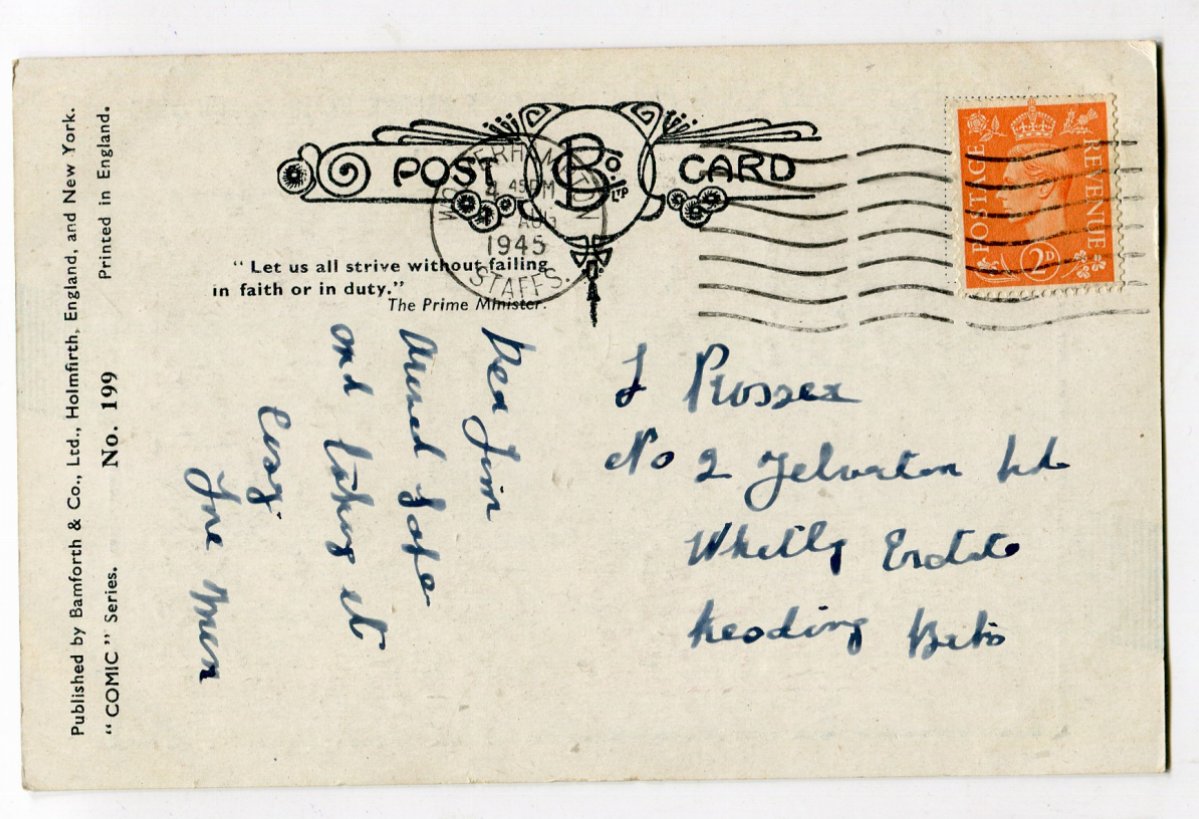 POST CARD
B Co. LTD
WOLVERHAMPTON
45 PM
AUG
1945
STAFFS.
POSTAGE REVENUE
2D
" Let us all strive without failing
in faith or in duty."
The Prime Minister.
Published by Bamforth & Co., Ltd., Holmfirth, England, and New York.
"COMIC" Series. No. 199 Printed in England.
Dea Jim
Arived safe
and taking it
Easy
J
No 2 Yelverton Rd
Whitly Estate
Reading Beks